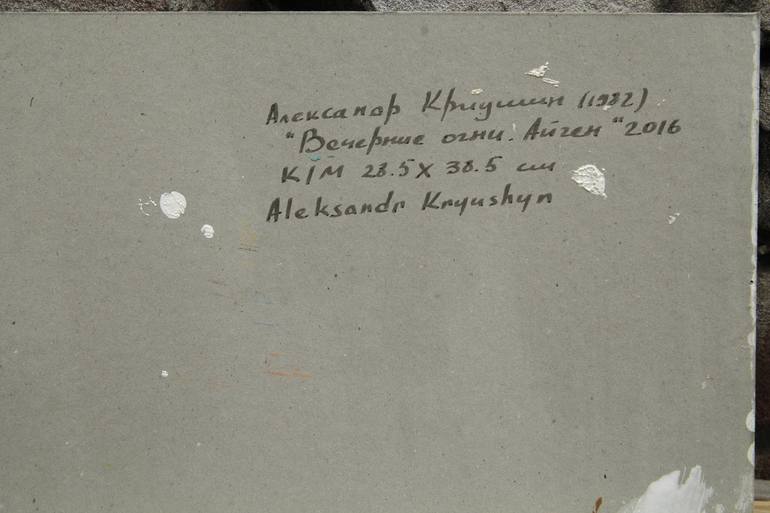 Александр Криушин (1982)
"Вечерние огни. Айген" 2016
К/М 28.5 х 38.5 см
Aleksandr Kryushyn